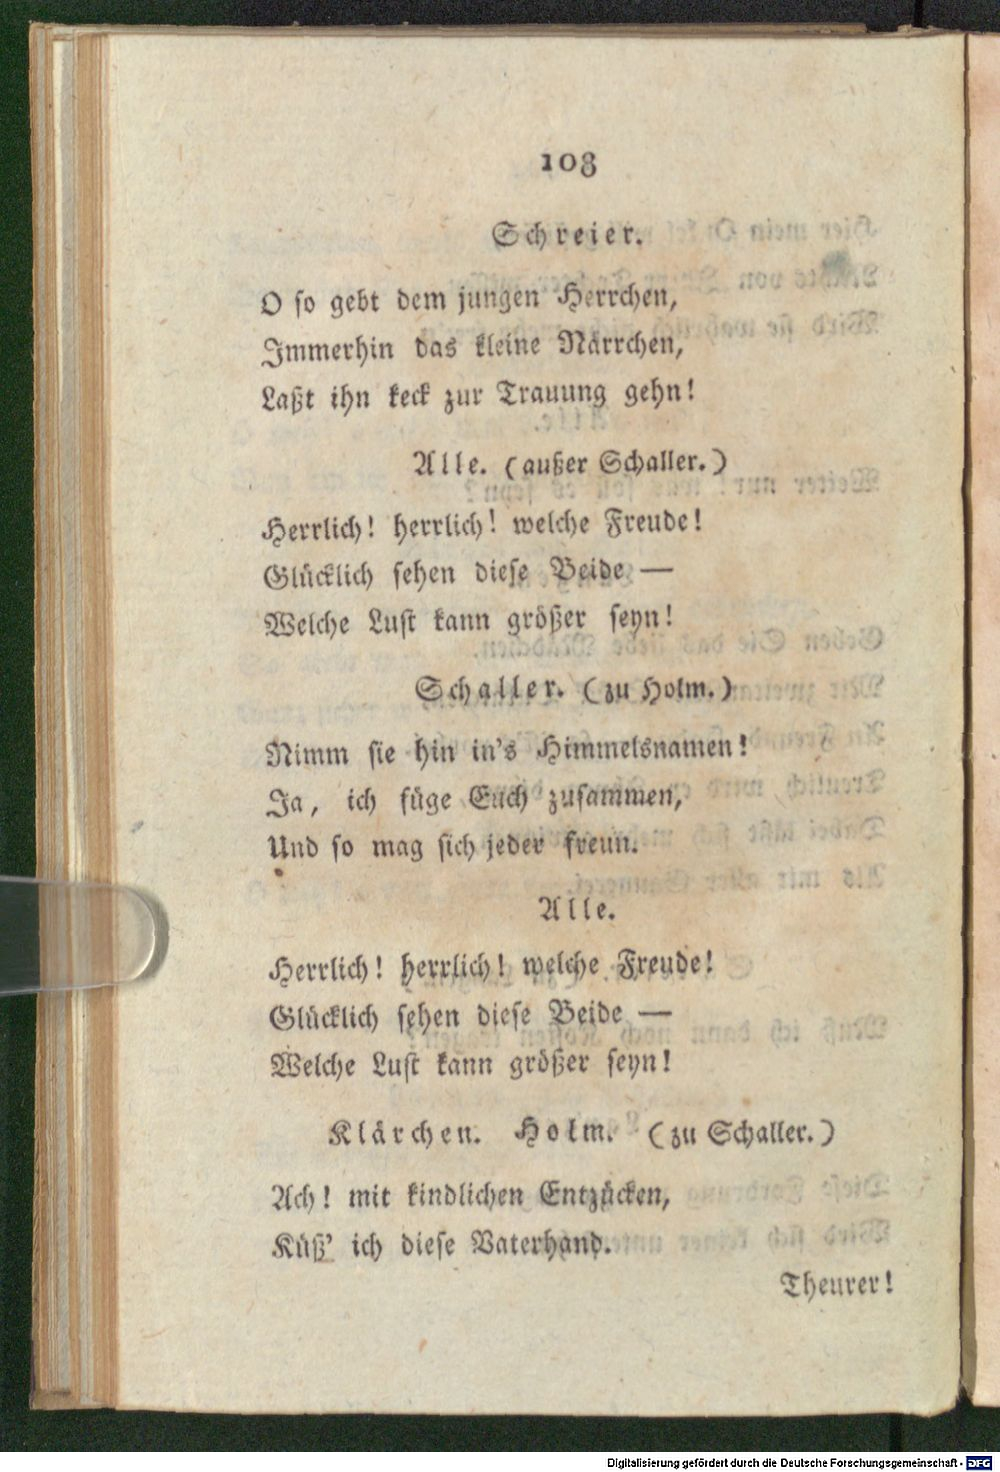 108
Schreier.
O so gebt dem jungen Herrchen,
Immerhin das kleine Närrchen,
Laßt ihn keck zur Trauung gehn!
Alle. (außer Schaller.)
Herrlich! herrlich! welche Freude!
Glücklich sehen diese Beide —
Welche Lust kann größer seyn!
Schaller. (zu Holm.)
Nimm sie hin in's Himmelsnamen!
Ja, ich füge Euch zusammen,
Und so mag sich jeder freun.
Alle.
Herrlich! herrlich! welche Freude!
Glücklich sehen diese Beide —
Welche Lust kann größer seyn!
Klärchen. Holm. (zu Schaller.)
Ach! mit kindlichen Entzücken,
Küß' ich diese Vaterhand.
Theurer!
Digitalisierung gefördert durch die Deutsche Forschungsgemeinschaft - DFG